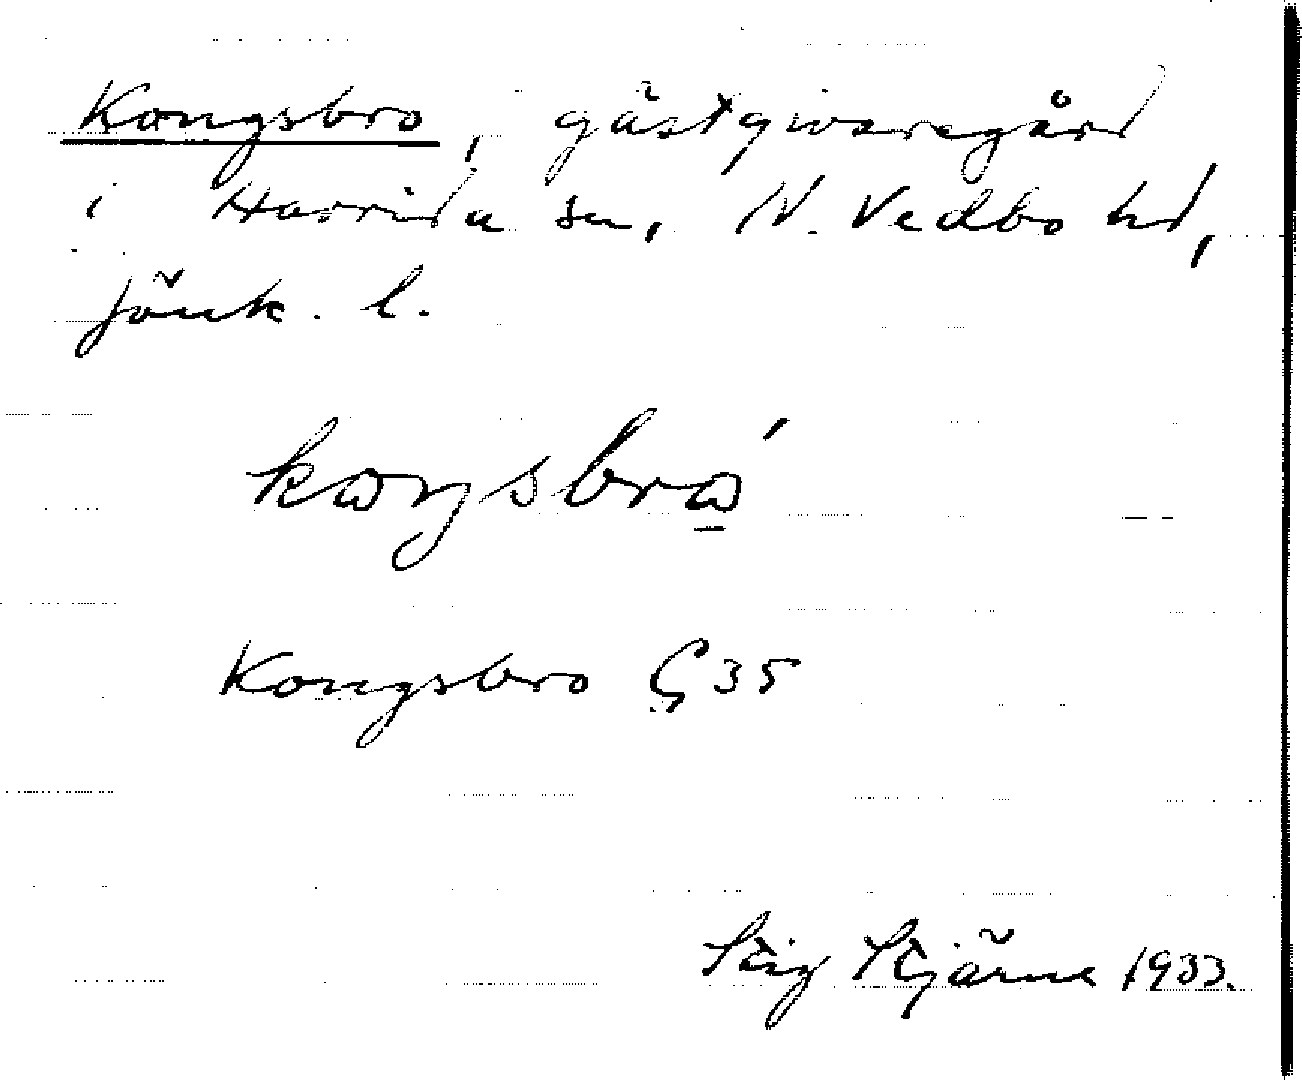 Kongsbro, gästgivaregård
i Hurrida sn, N. Vedbo hd,
Jönk. l.
kaŋsbra̱ ́
Kongsbro G 35
Stig Stjärne 1933.